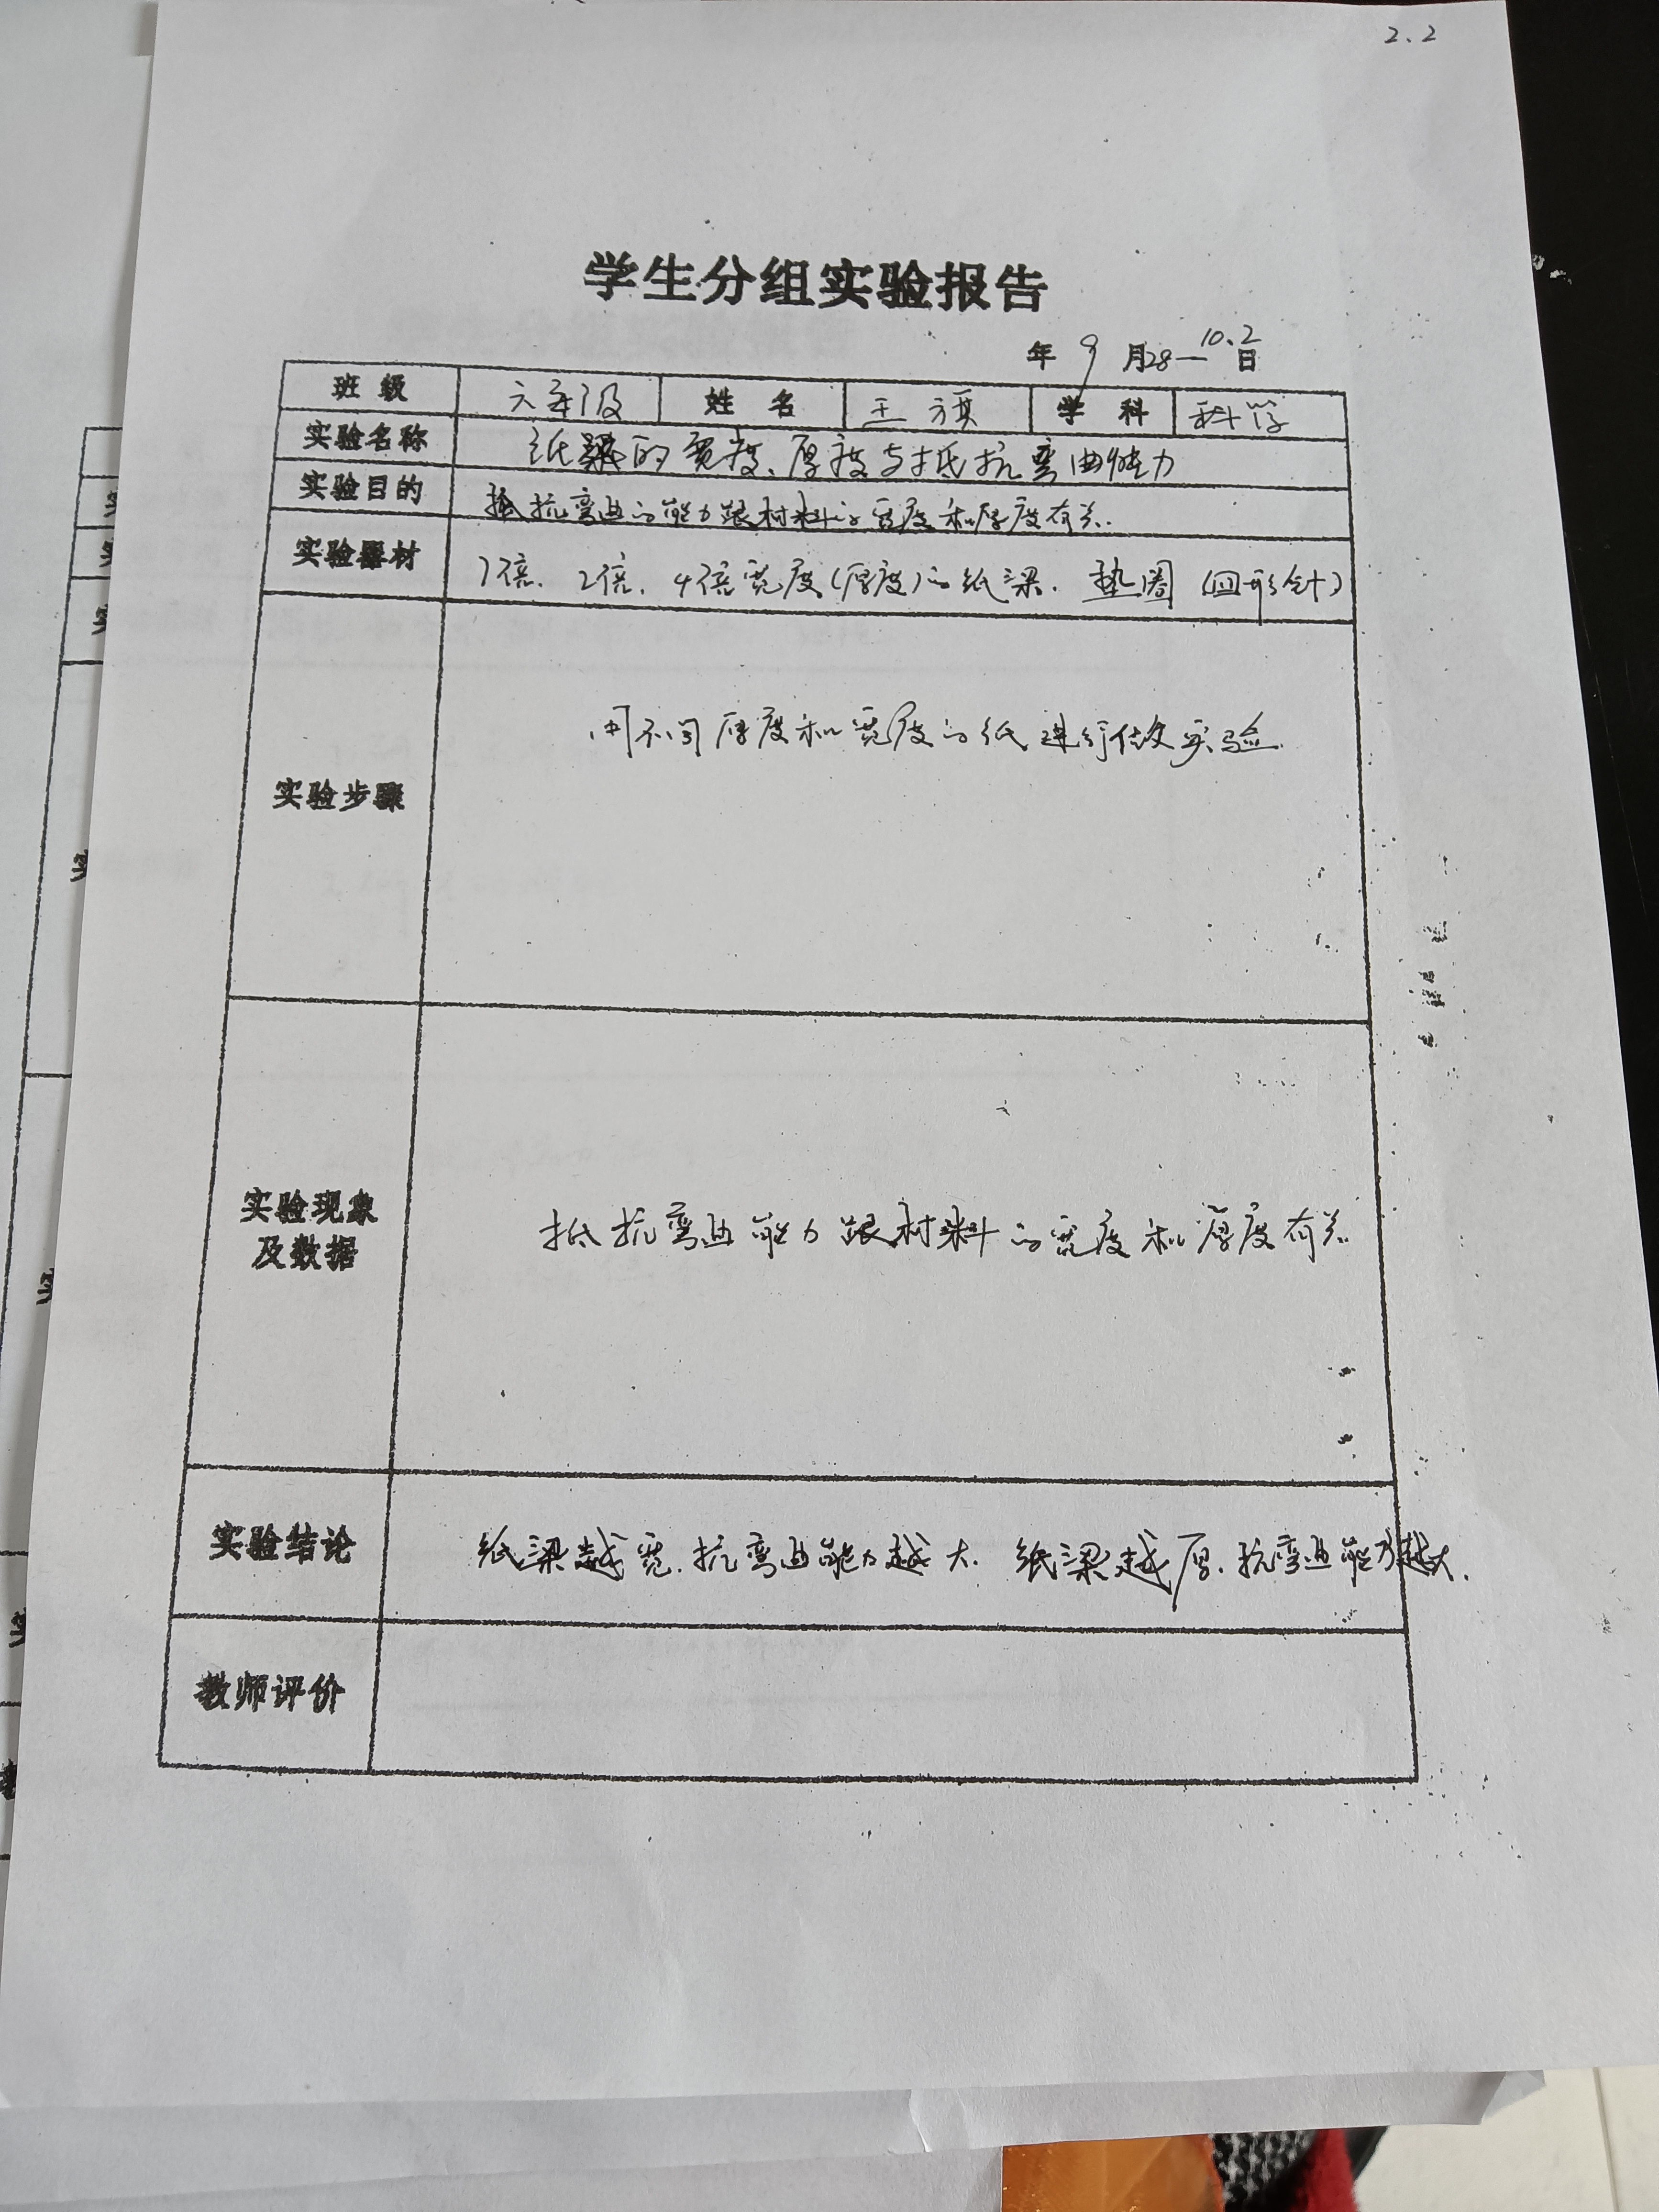 2.2
学生分组实验报告
年 9 月28—10.2日
班 级 六年级 姓 名 王 学 科 科学
实验名称 纸梁的宽度、厚度与抵抗弯曲能力
实验目的 抵抗弯曲的能力跟材料的宽度和厚度有关.
实验器材 1倍. 2倍. 4倍宽度(厚度)的纸梁. 垫圈 (回形针)
实验步骤 用不同厚度和宽度的纸进行做实验.
实验现象
及数据 抵抗弯曲能力跟材料的宽度和厚度有关.
实验结论 纸梁越宽.抗弯曲能力越大. 纸梁越厚.抗弯曲能力越大.
教师评价